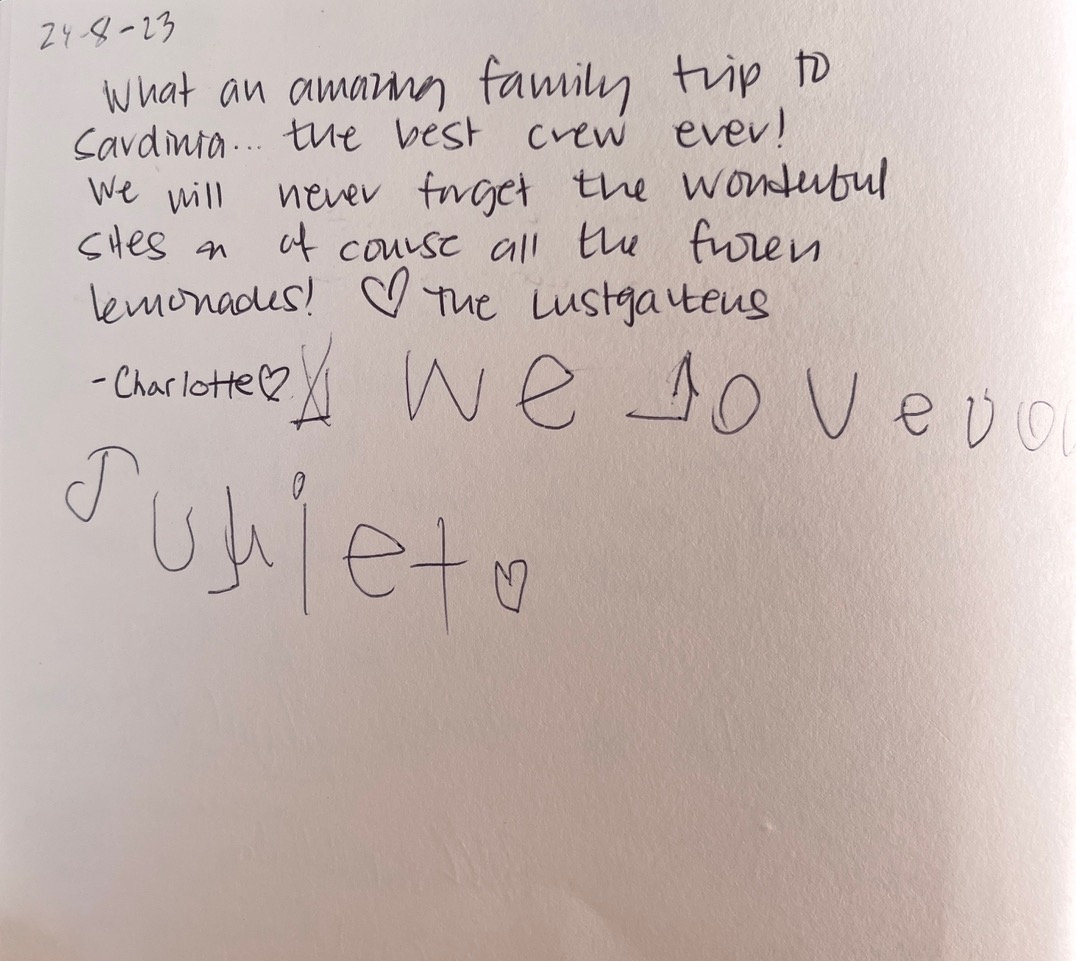 24-8-23
What an amazing family trip to
Sardinia... the best crew ever!
We will never forget the wonderful
sites of course all the frozen
lemonades! ♡ The Lustgartens
-Charlotte♡ We Love you
♡